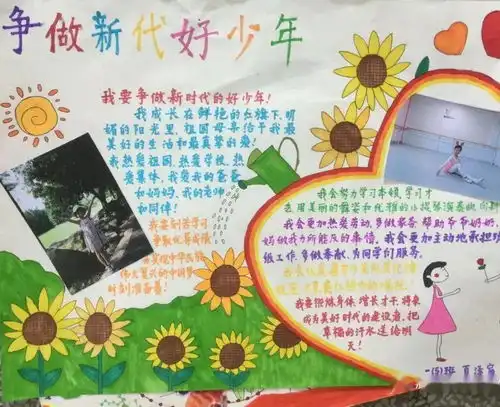 争做新代好少年
我要争做新时代的好少年!
我成长在鲜艳的红旗下,明
媚的阳光里,祖国母亲给予我最
美好的生活和最真挚的爱!
我热爱祖国,热爱学校,热
爱集体,我爱我的爸爸
和妈妈,我的老师
和同伴!
我要刻苦学习
争取优异成绩
为实现中华民族
伟大复兴的中国梦
时刻准备着!
我会努力学习本领,学习才
我会更加热爱劳动,多做家务,帮助爷爷奶奶,
妈做我力所能及的事情,我会更加主动地承担班
级工作,多做奉献,为同学们服务,
我要锻炼身体,增长才干,将来
成为美好时代的建设者,把
幸福的汗水送给明
天!